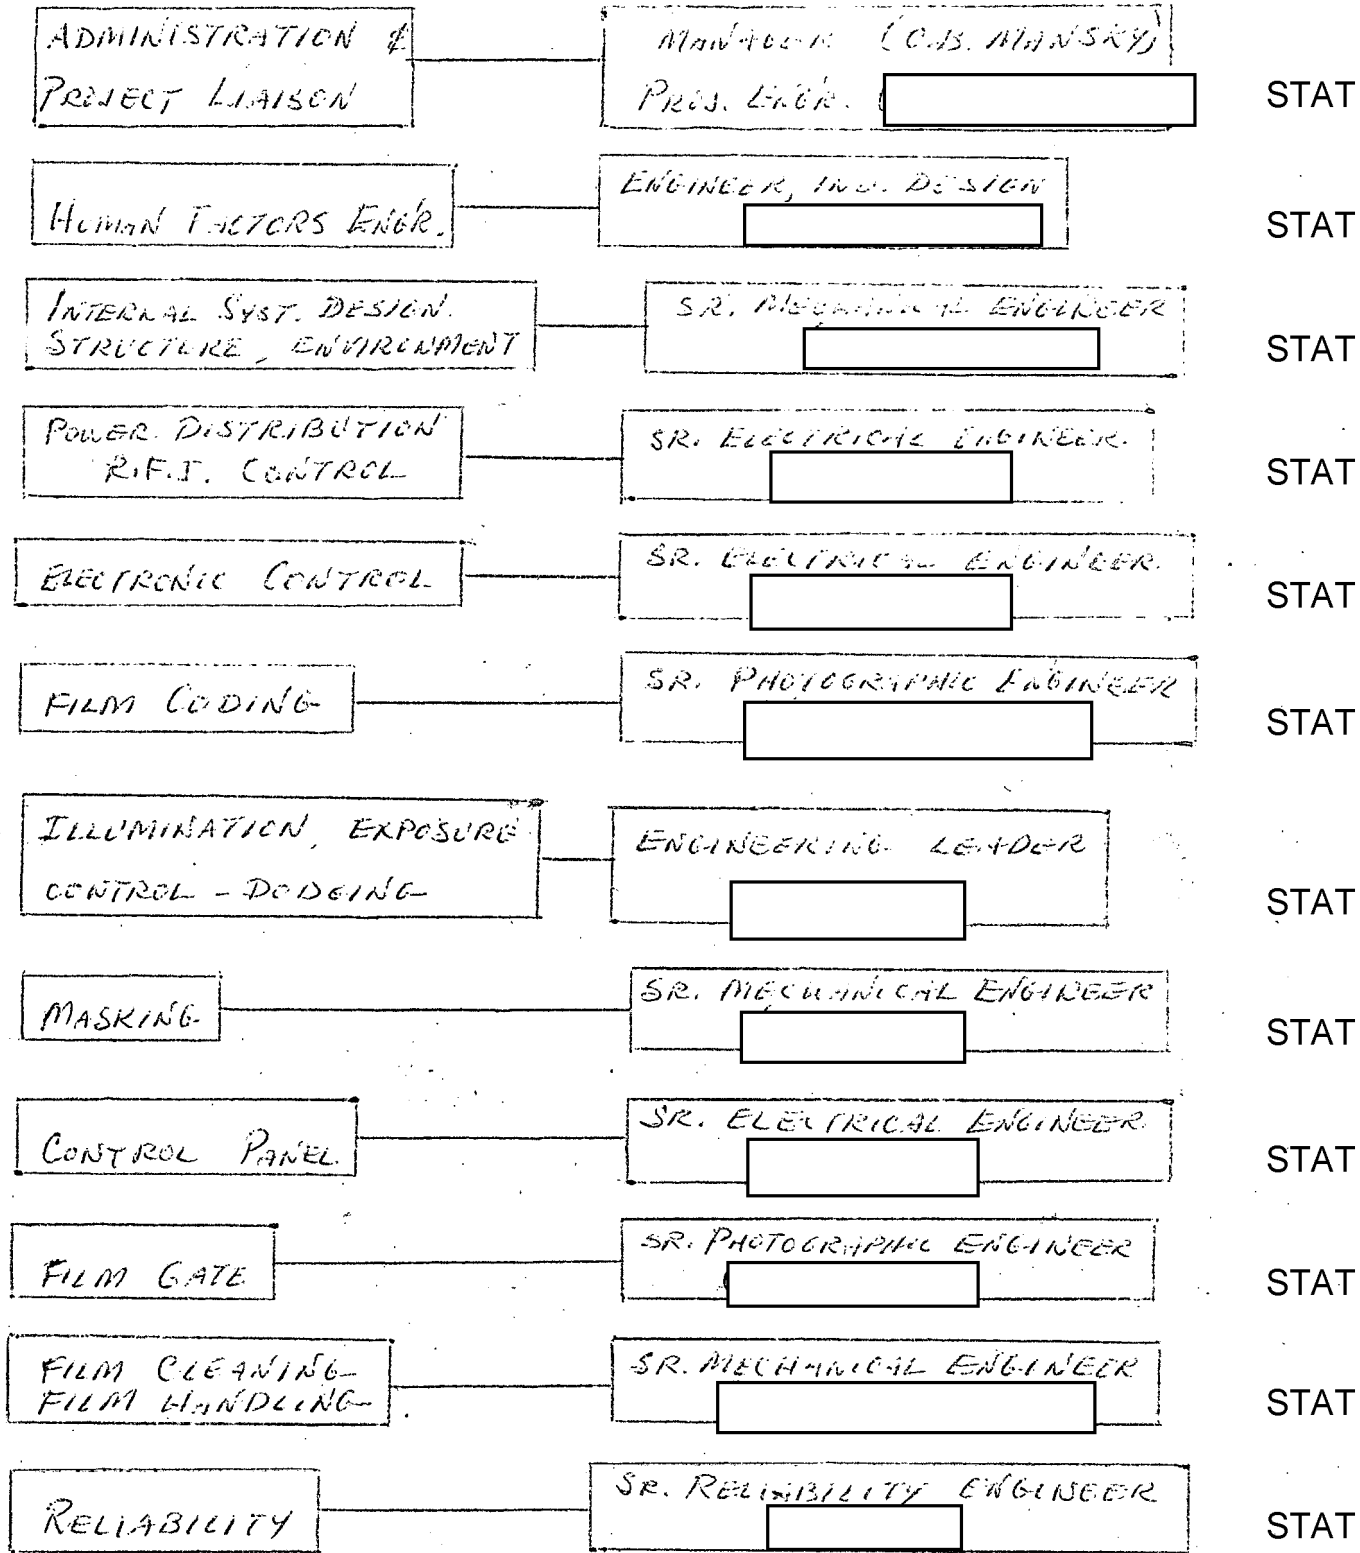 ADMINISTRATION &
PROJECT LIAISON
MANAGER (C.B. MANSKY)
PROJ. ENGR. (
STAT
HUMAN FACTORS ENGR.
ENGINEER, IND. DESIGN
STAT
INTERNAL SYST. DESIGN.
STRUCTURE, ENVIRONMENT
SR. MECHANICAL ENGINEER
STAT
POWER DISTRIBUTION
R.F.I. CONTROL
SR. ELECTRICAL ENGINEER.
STAT
ELECTRONIC CONTROL
SR. ELECTRICAL ENGINEER.
STAT
FILM CODING
SR. PHOTOGRAPHIC ENGINEER
STAT
ILLUMINATION, EXPOSURE
CONTROL - DODGING
ENGINEERING LEADER
STAT
MASKING
SR. MECHANICAL ENGINEER
STAT
CONTROL PANEL
SR. ELECTRICAL ENGINEER
STAT
FILM GATE
SR. PHOTOGRAPHIC ENGINEER
STAT
FILM CLEANING
FILM HANDLING
SR. MECHANICAL ENGINEER
STAT
RELIABILITY
SR. RELIABILITY ENGINEER
STAT